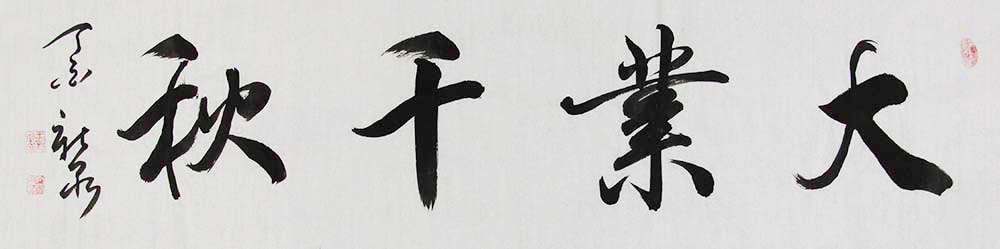 大業千秋